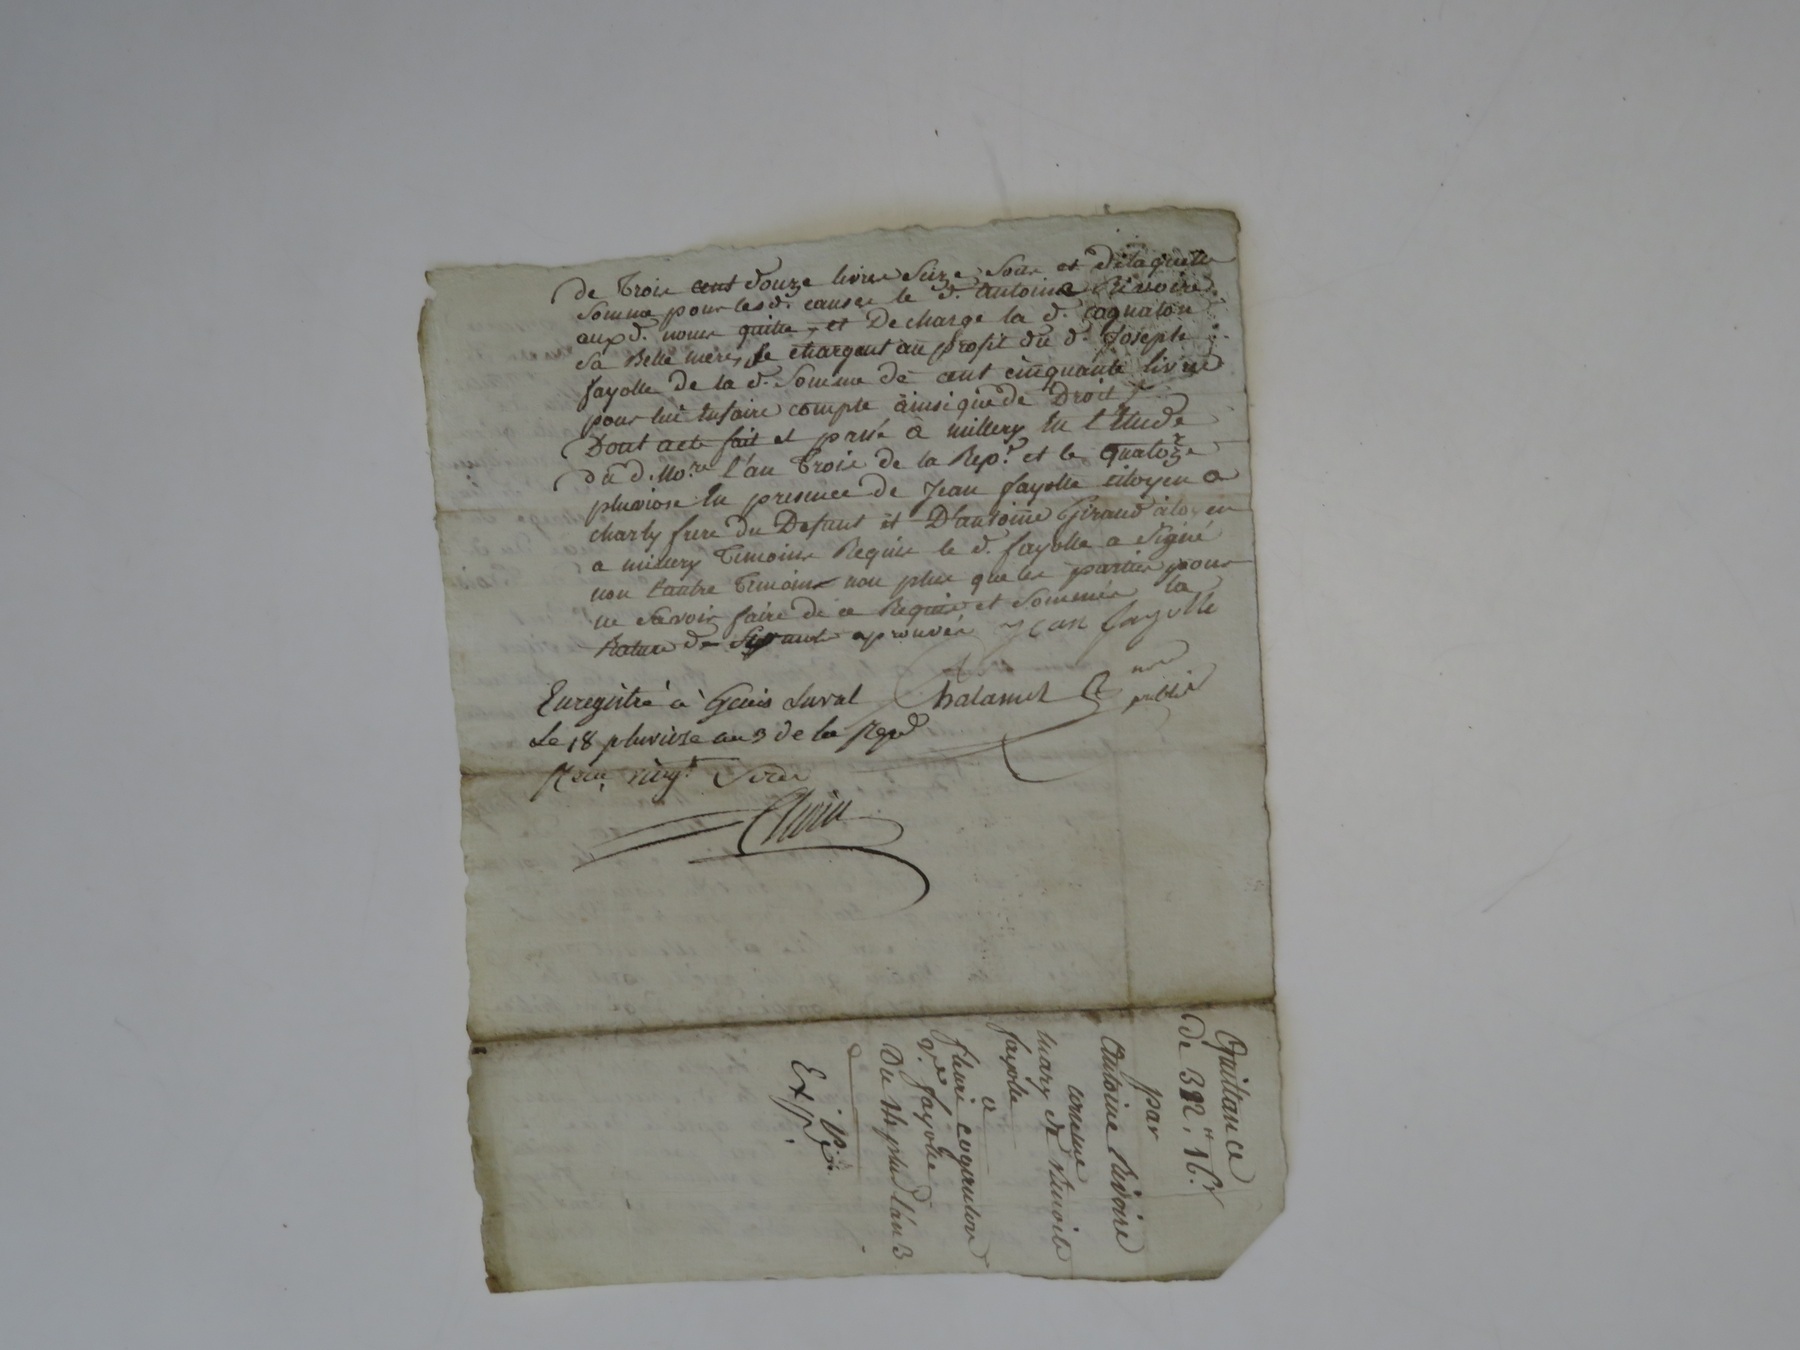 de trois cent douze livres seize sous et de laquelle
somme pour lesd. causes le d. antoine Rivoire
auxd. noms quitte et decharge la d. cognaton
sa Belle mere, se chargeant au profit du d. Joseph
fayolle de la d. somme de cent cinquante livres
pour lui en faire compte ainsi que de Droit
Dont acte fait et passé a millery en l'Etude
du d. No.re l'an trois de la Rep.e et le quatorze
pluviose en presence de Jean fayolle citoyen a
charly frere du Defunt et D'antoine Giraud citoyen
a millery temoins Requis le d. fayolle a signé
non l'autre temoins non plus que les parties pour
ne savoir faire de ce Requis et sommés la
Rature de approuvée Jean fayolle
Enregistré à Genis Laval Chalamel nre public
Le 18 pluviose an 3 de la Repe
Reçu vingt sous
Quittance
de 312.# 16.s
par
Antoine Rivoire
comme
mary de Benoite
fayolle
a
fleurie cognaton
v.ve fayolle
Du 14 pluv. l'an 3
Exp.